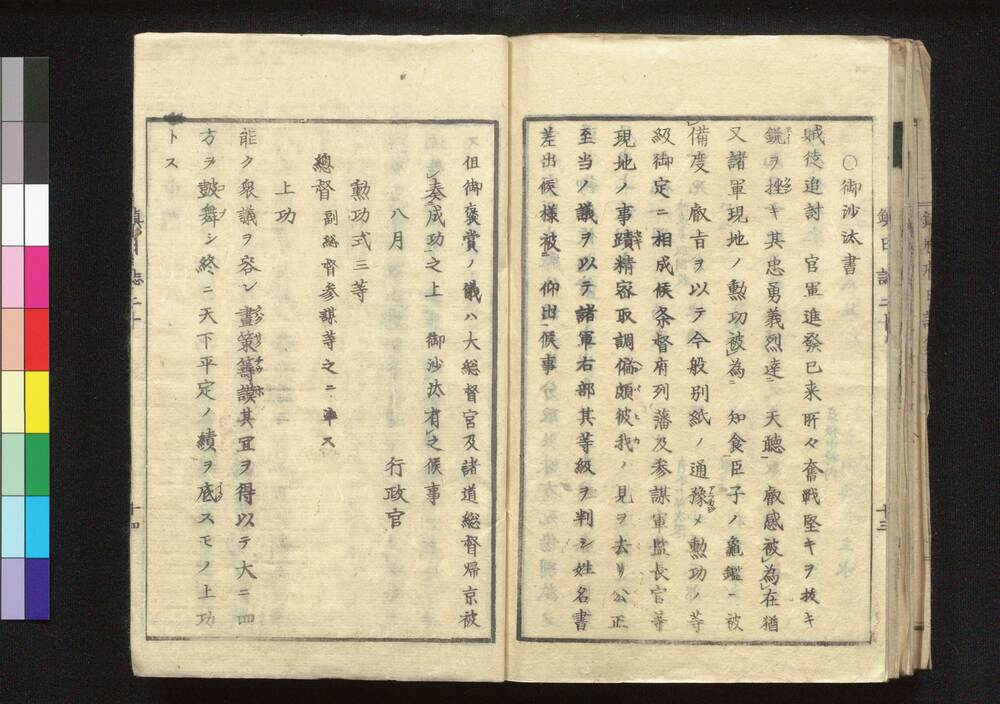 ○御沙汰書
賊徒追討 官軍進發已来所々奮戰堅キヲ抜キ
鋭ヲ挫キ其忠勇義烈達 天聽 叡感被為在猶
又諸軍現地ノ勲功被為 知食臣子ノ龜鑑ニ被
備度 叡旨ヲ以テ今般別紙ノ通豫メ勲功ノ等
級御定ニ相成候条督府列藩及参謀軍監長官等
現地ノ事蹟精密取調偏頗彼我ノ見ヲ去リ公正
至当ノ議ヲ以テ諸軍右部其等級ヲ判シ姓名書
差出候様被 仰出候事
但御褒賞ノ儀ハ大総督宮及諸道総督帰京被
奏成功之上 御沙汰有之候事
八月 行政官
勲功式三等
總督 副総督参謀等之ニ準ス
上功
能ク衆議ヲ容レ畫策籌謨其宜ヲ得以テ大ニ四
方ヲ鼓舞シ終ニ天下平定ノ績ヲ底スモノ上功
トス
鎮日誌二十
十三
十四